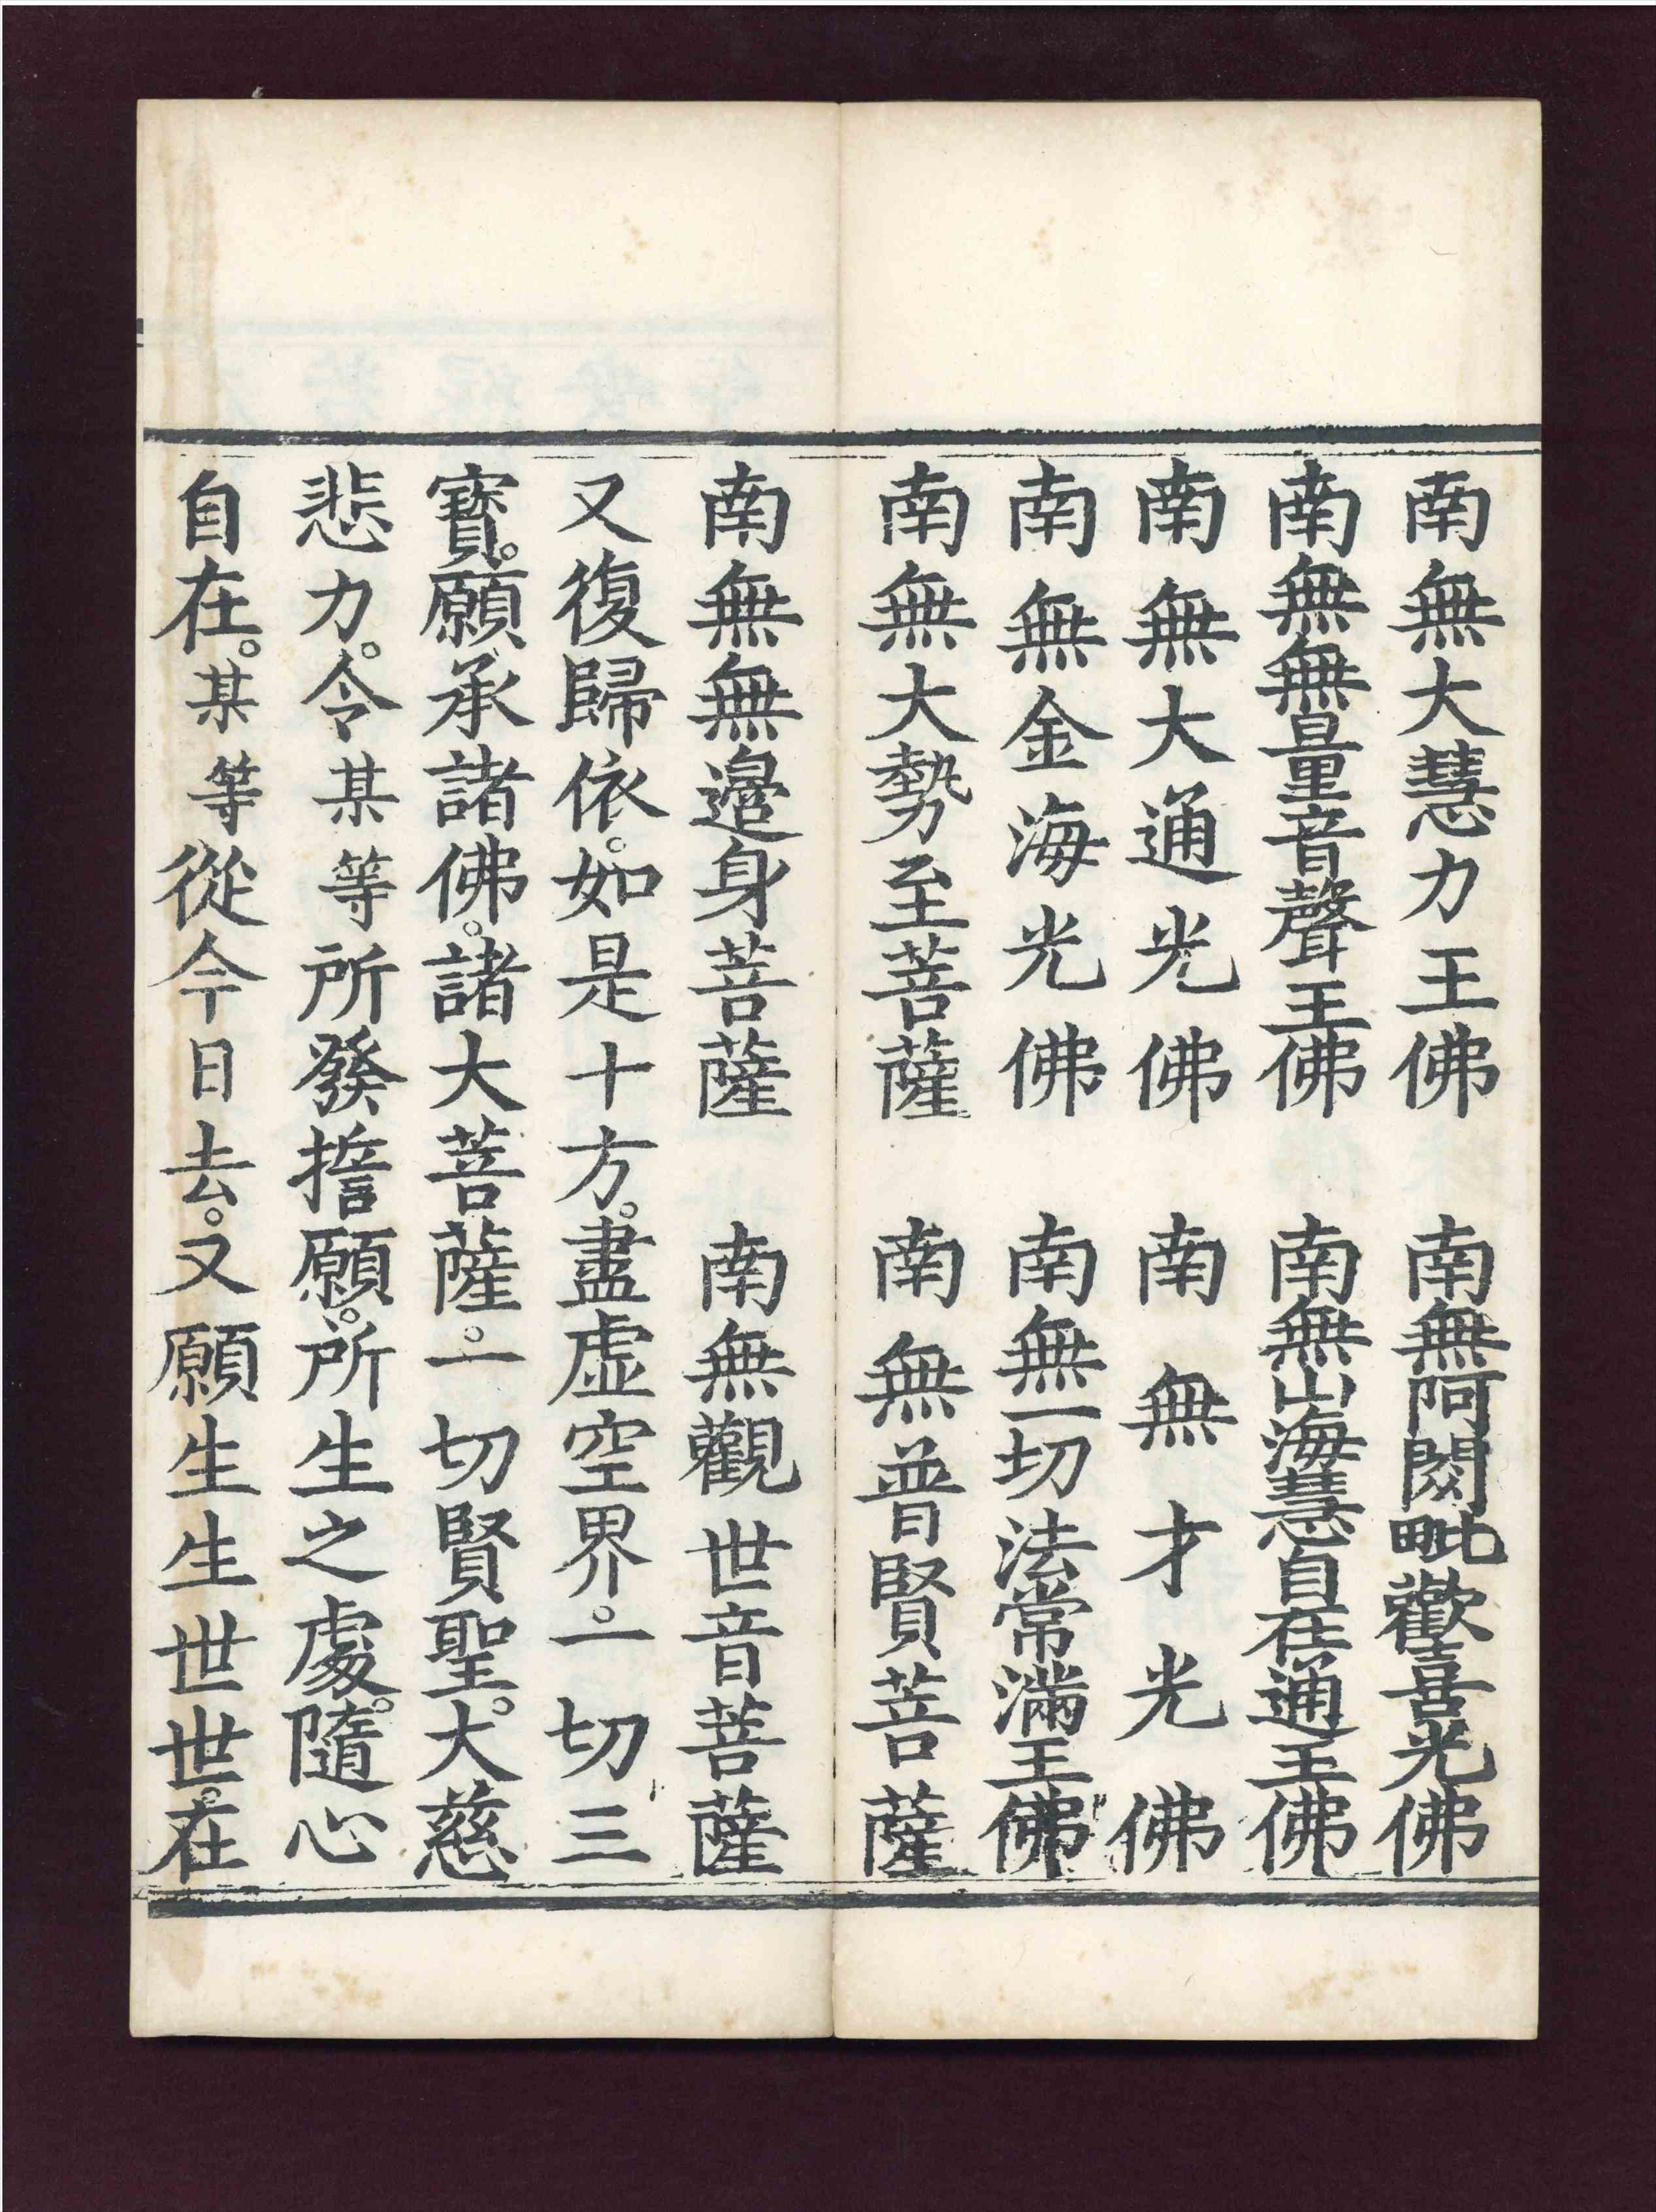 南無大慧力王佛　南無阿閦毗歡喜光佛
南無無量音聲王佛　南無山海慧自在通王佛
南無大通光佛　南無才光佛
南無金海光佛　南無一切法常滿王佛
南無大勢至菩薩　南無普賢菩薩
南無無邊身菩薩　南無觀世音菩薩
又復歸依。如是十方。盡虛空界。一切三
寶。願承諸佛。諸大菩薩。一切賢聖。大慈
悲力。令某等所發誓願。所生之處。隨心
自在。某等從今日去。又願生生世世。在